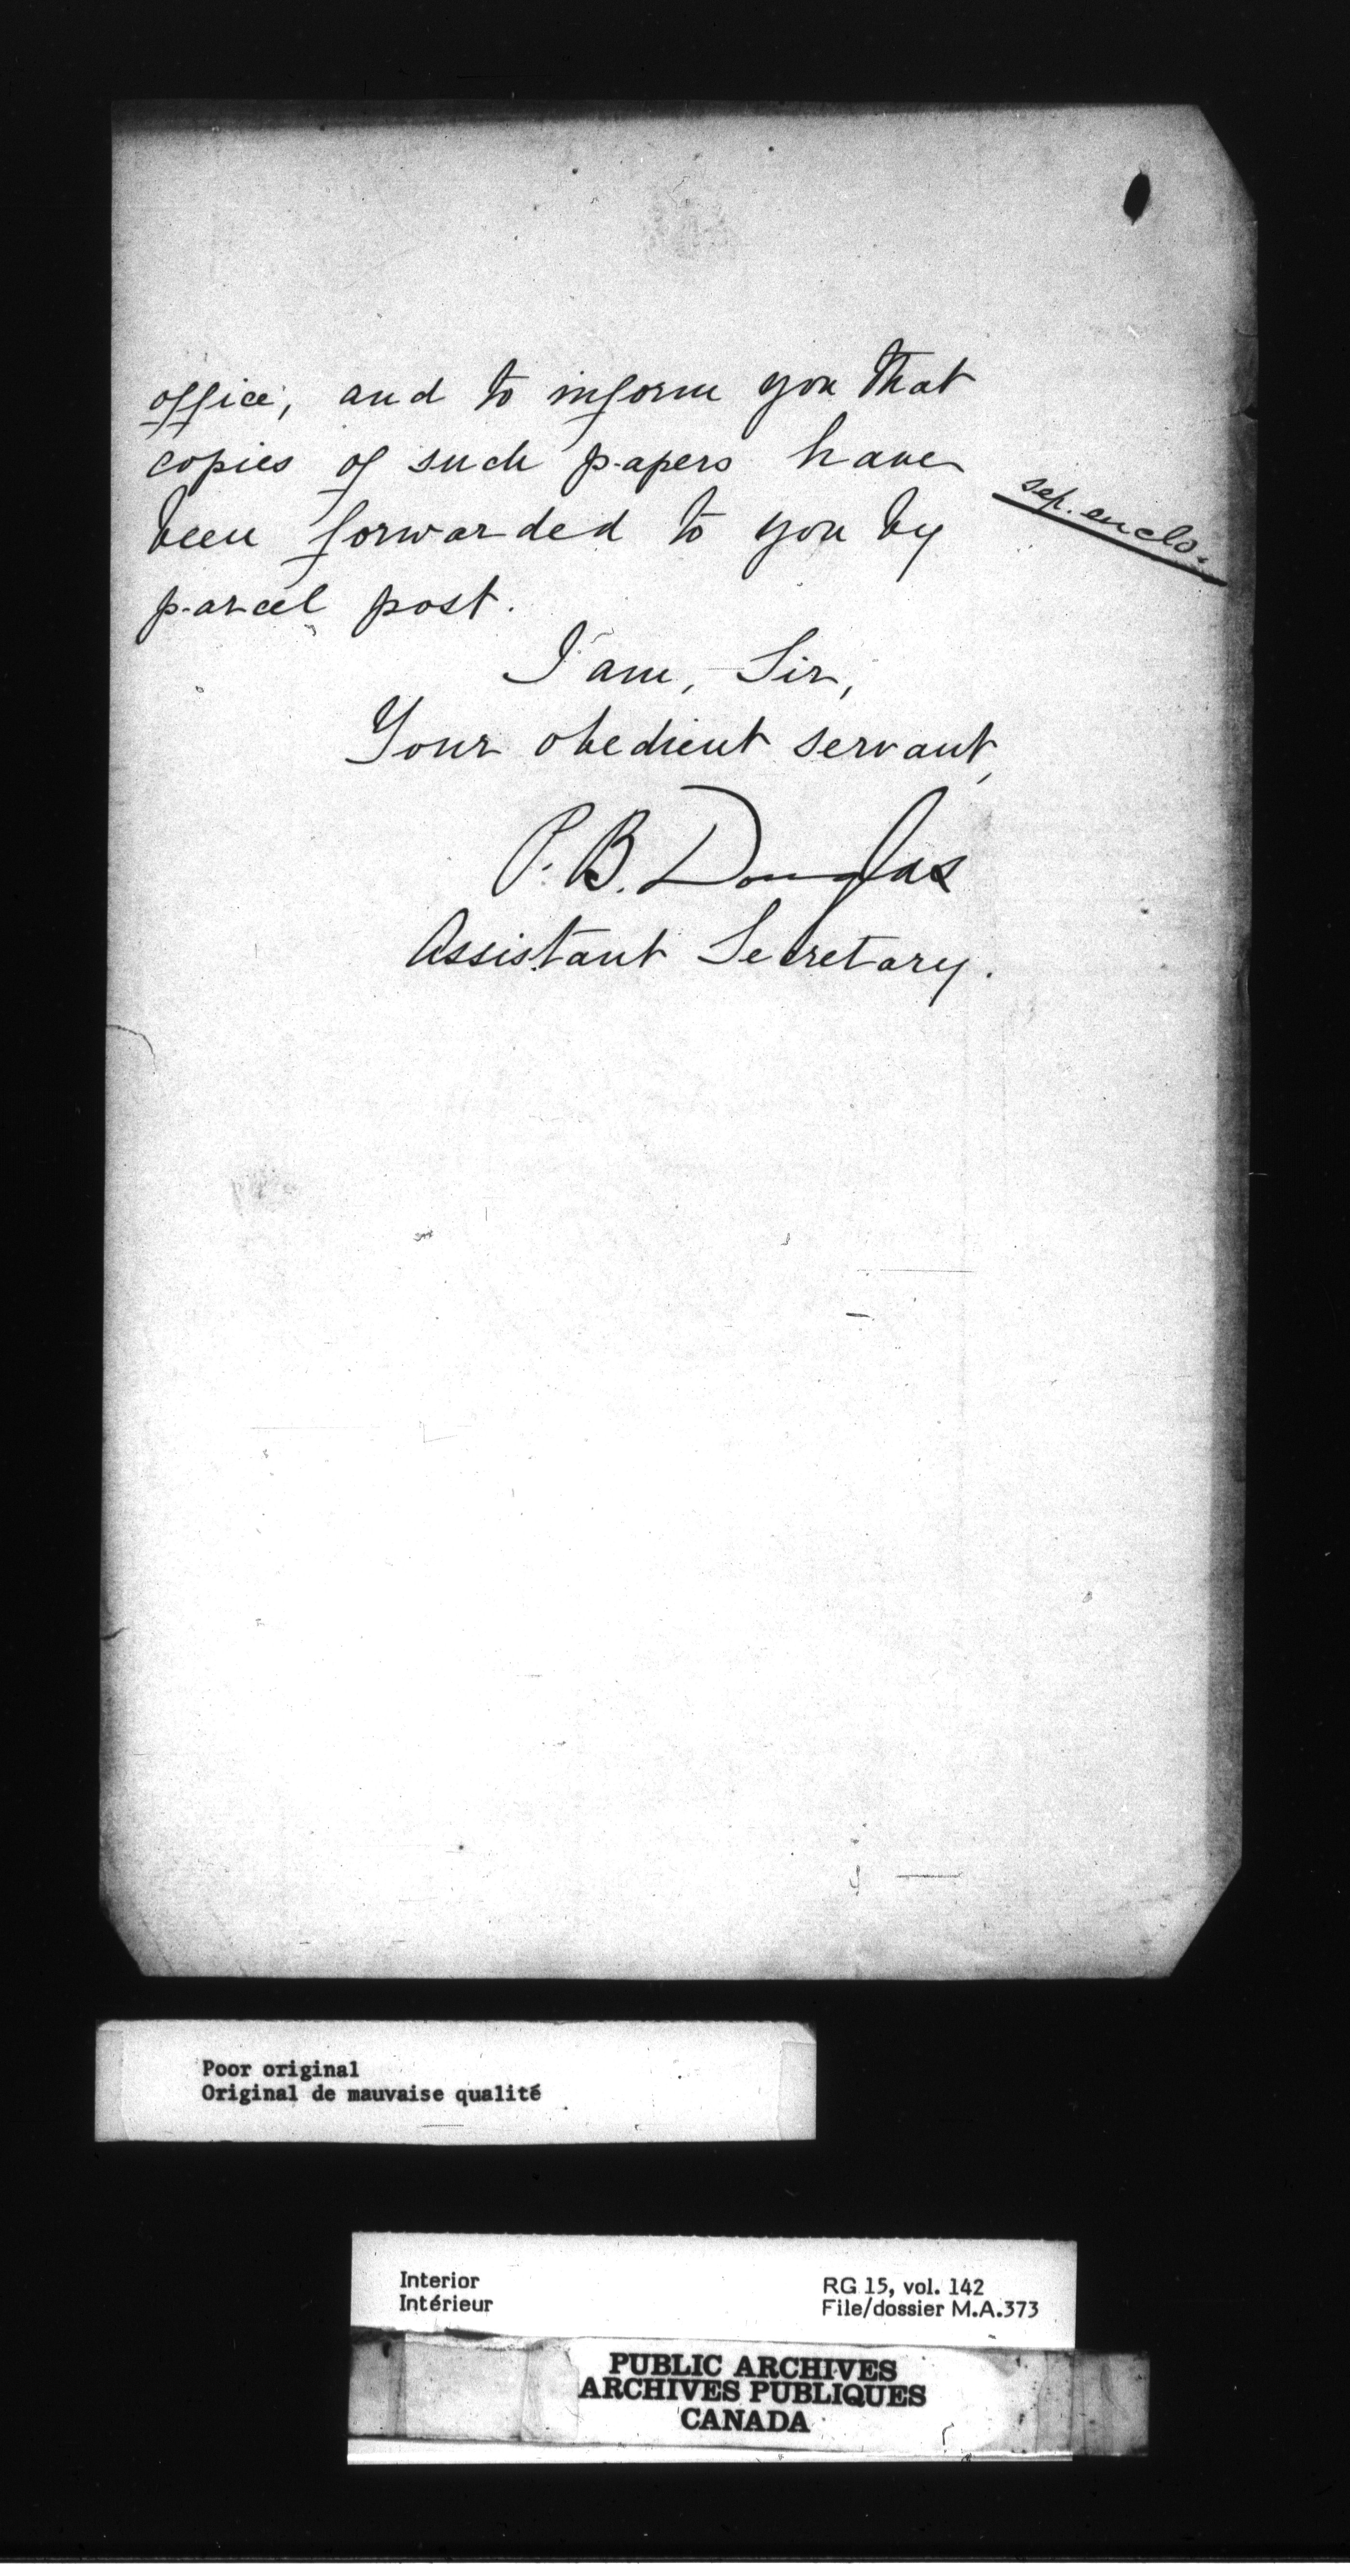 office, and to inform you that
copies of such papers have
sep. enclo.
been forwarded to you by
parcel post.
I am, Sir,
Your obedient servant,
P. B. Douglas
Assistant Secretary.
Poor original
Original de mauvaise qualité
Interior
Intérieur
RG 15, vol. 142
File/dossier M.A.373
PUBLIC ARCHIVES
ARCHIVES PUBLIQUES
CANADA